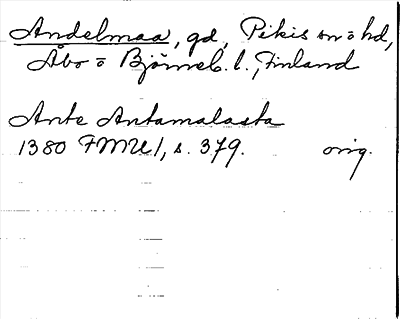 Andelmaa, gd, Pikis sn o hd,
Åbo o Björneb. l., Finland
Ante Antamalasta
1380 FMU 1, s. 379. orig.